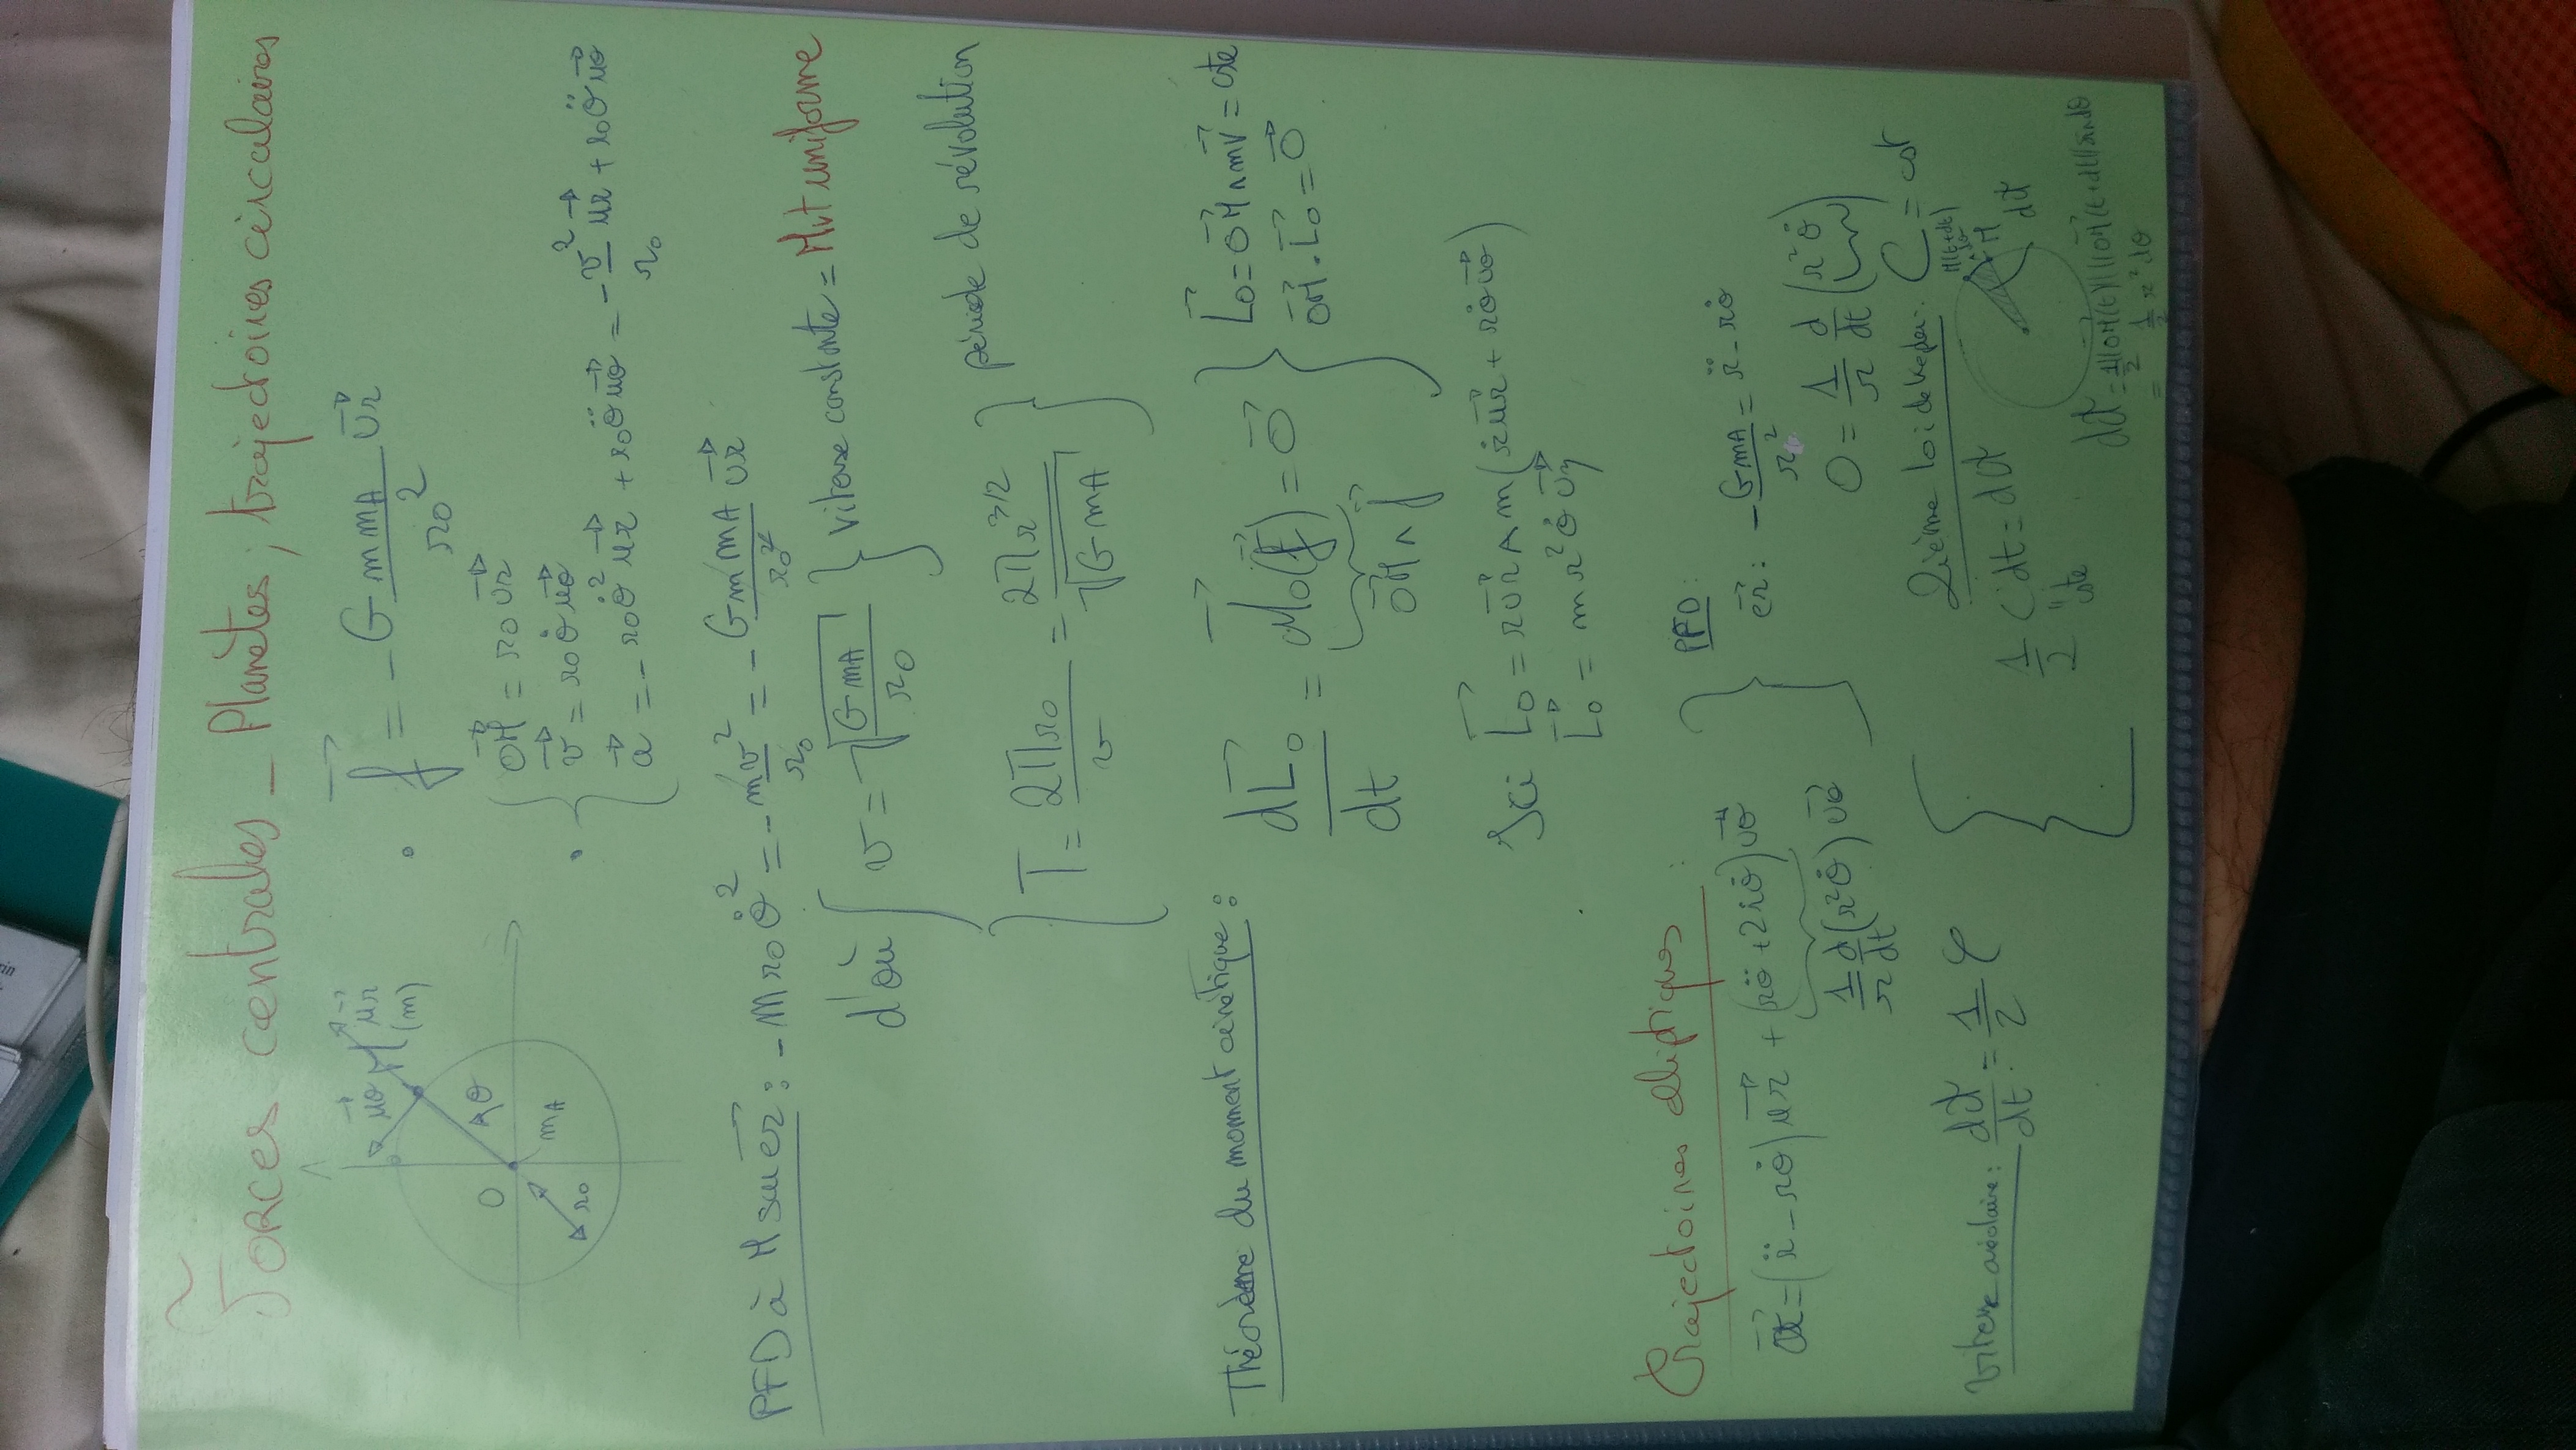 Forces centrales _ Planètes ; trajectoires circulaires
uθ→ M ur→
(m)
θ
O
mA
r0
• f→ = - G m mA / r0² ur→
• { OM→ = r0 ur→
v→ = r0 θ̇ uθ→
a→ = - r0 θ̇² ur→ + r0 θ̈ uθ→ = - v²/r0 ur→ + r0 θ̈ uθ→
PFD à M sur er→ : - m r0 θ̇² = - m v²/r0 = - G m mA / r0² ur→
d'où { v = √(G mA / r0) } vitesse constante = Mvt uniforme
{ T = 2π r0 / v = 2π r^3/2 / √(G mA) } période de révolution
Théorème du moment cinétique : dL0→/dt = M0→(f→) = 0→ } L0→ = OM→ ∧ mv→ = cste
OM→ ∧ f→ OM→ . L0→ = 0→
Ici L0→ = r ur→ ∧ m(ṙ ur→ + rθ̇ uθ→)
L0→ = m r² θ̇ uz→
Trajectoires eliptiques :
a→ = (r̈ - rθ̇) ur→ + (rθ̈ + 2ṙθ̇) uθ→
1/r d/dt (r²θ̇) uθ→
} PFD :
er→ : - G mA / r² = r̈ - rθ̇
0 = 1/r d/dt (r²θ̇)
C = cst
vitesse aréolaire : dA/dt = 1/2 C
2ième loi de Kepler :
1/2 C dt = dA
cste
M(t+dt)
dθ
M
dA
dA = 1/2 ||OM→(t)|| ||OM→(t+dt)|| sin dθ
= 1/2 r² dθ